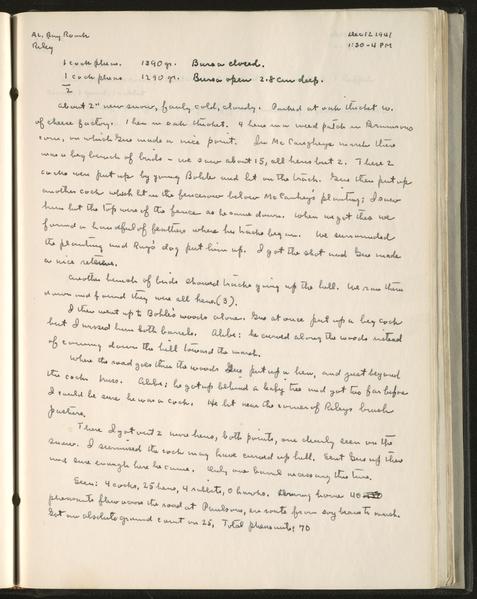 AL, Bug Roark Dec 12 1941
Riley 1:30-4 PM
1 cock pheas. 1390 gr. Bursa closed.
1 cock pheas 1290 gr. Bursa open 2.8 cm deep.
2
About 2" new snow, fairly cold, cloudy. Parked at oak thicket w.
of cheese factory. 1 hen in oak thicket. 4 hens in weed patch in
corn, on which Gus made a nice point. In McCaughey's marsh there
was a big bunch of birds - we saw about 15, all hens but 2. These 2
cocks were put up by young Bohle and lit on the track. Gus then put up
another cock which lit in the fencerow below McCaughey's planting; I saw
him hit the top wire of the fence as he came down. When we got there we
found a handful of feathers where his tracks began. We surrounded
the planting and Roy's dog put him up. I got the shot and Gus made
a nice retrieve.
Another bunch of birds showed tracks going up the hill. We ran them
down and found they were all hens (3).
I then went up to Bohle's woods alone. Gus at once put up a big cock
but I missed him both barrels. Alibi: he curved along the woods instead
of coming down the hill toward the marsh.
Where the road goes thru the woods Gus put up a hen, and just beyond
the cock. Miss. Alibi: he got up behind a leafy tree and got too far before
I could be sure he was a cock. He lit near the corner of Riley's brush
pasture.
There I got out 2 more hens, both points, one clearly seen on the
snow. I surmised the cock may have curved up hill. Sent Gus up there
and sure enough here he came. Only one barrel necessary this time.
Seen: 4 cocks, 25 hens, 4 rabbits, 0 hawks. Driving home 40
pheasants flew across the road at Paulsons, en route from soy beans to marsh.
Got an absolute ground count on 25, Total pheasants, 70